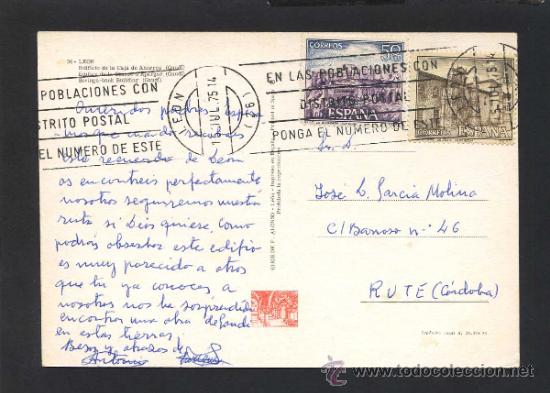 26 - LEON
Edificio de la Caja de Ahorros (Gaudí)
Savings-bank Building (Gaudí)
POBLACIONES CON
DISTRITO POSTAL
EL NUMERO DE ESTE
LEON
1 JUL. 75 14
(6)
EN LAS POBLACIONES CON
DISTRITO POSTAL
PONGA EL NUMERO DE ES
CORREOS
50
ESPAÑA
CORREOS ESPAÑA
Queridos padres
que cuando recibais
este recuerdo de León
os encontreis perfectamente
nosotros seguiremos nuestra
ruta si Dios quiere. Como
podrás observar este edificio
es muy parecido a otros
que tu ya conoces a
nosotros nos ha sorprendido
encontrar una obra de Gaudí
en estas tierras.
Besos y abrazos de
Antonio
Sr. D.
José L. García Molina
C/ Barroso nº 46
RUTE (Córdoba)
todocoleccion.net